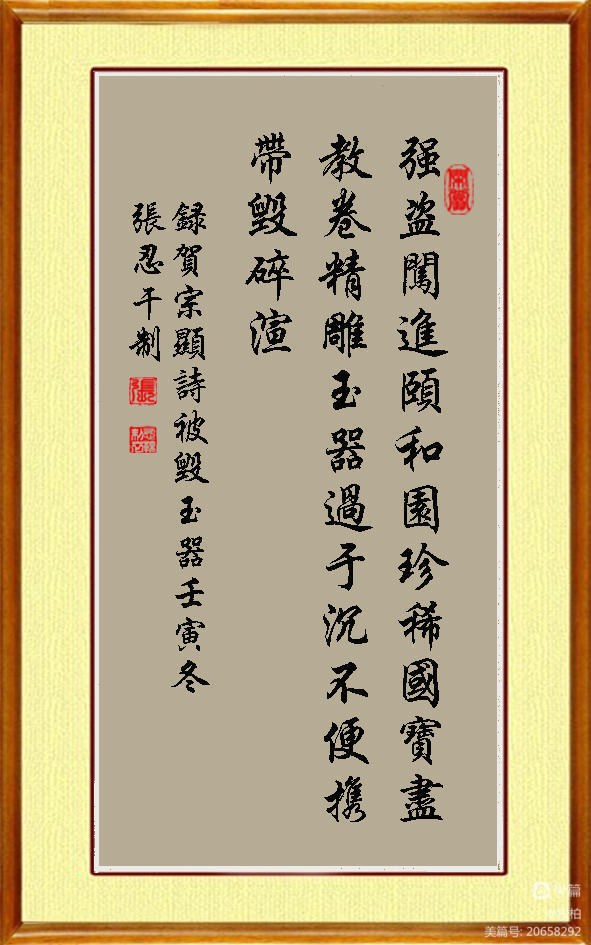 强盗闖進頤和園珍稀國寶盡
教卷精雕玉器過于沉不便携
帶毀碎渲
録賀宗顯詩被毀玉器壬寅冬
張忍干制
張
美篇
柏
美篇号: 20658292